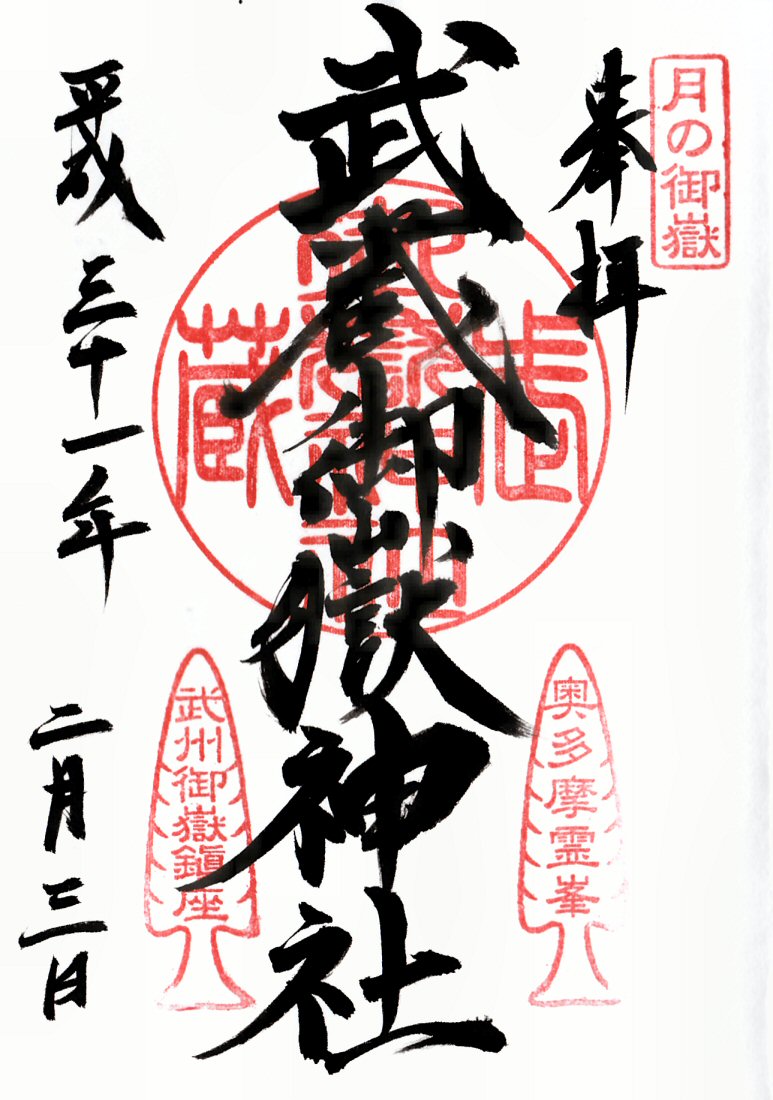 月の御嶽
奉拝
武蔵御嶽神社
武蔵
奥多摩霊峯
武州御嶽鎮座
平成三十一年二月三日